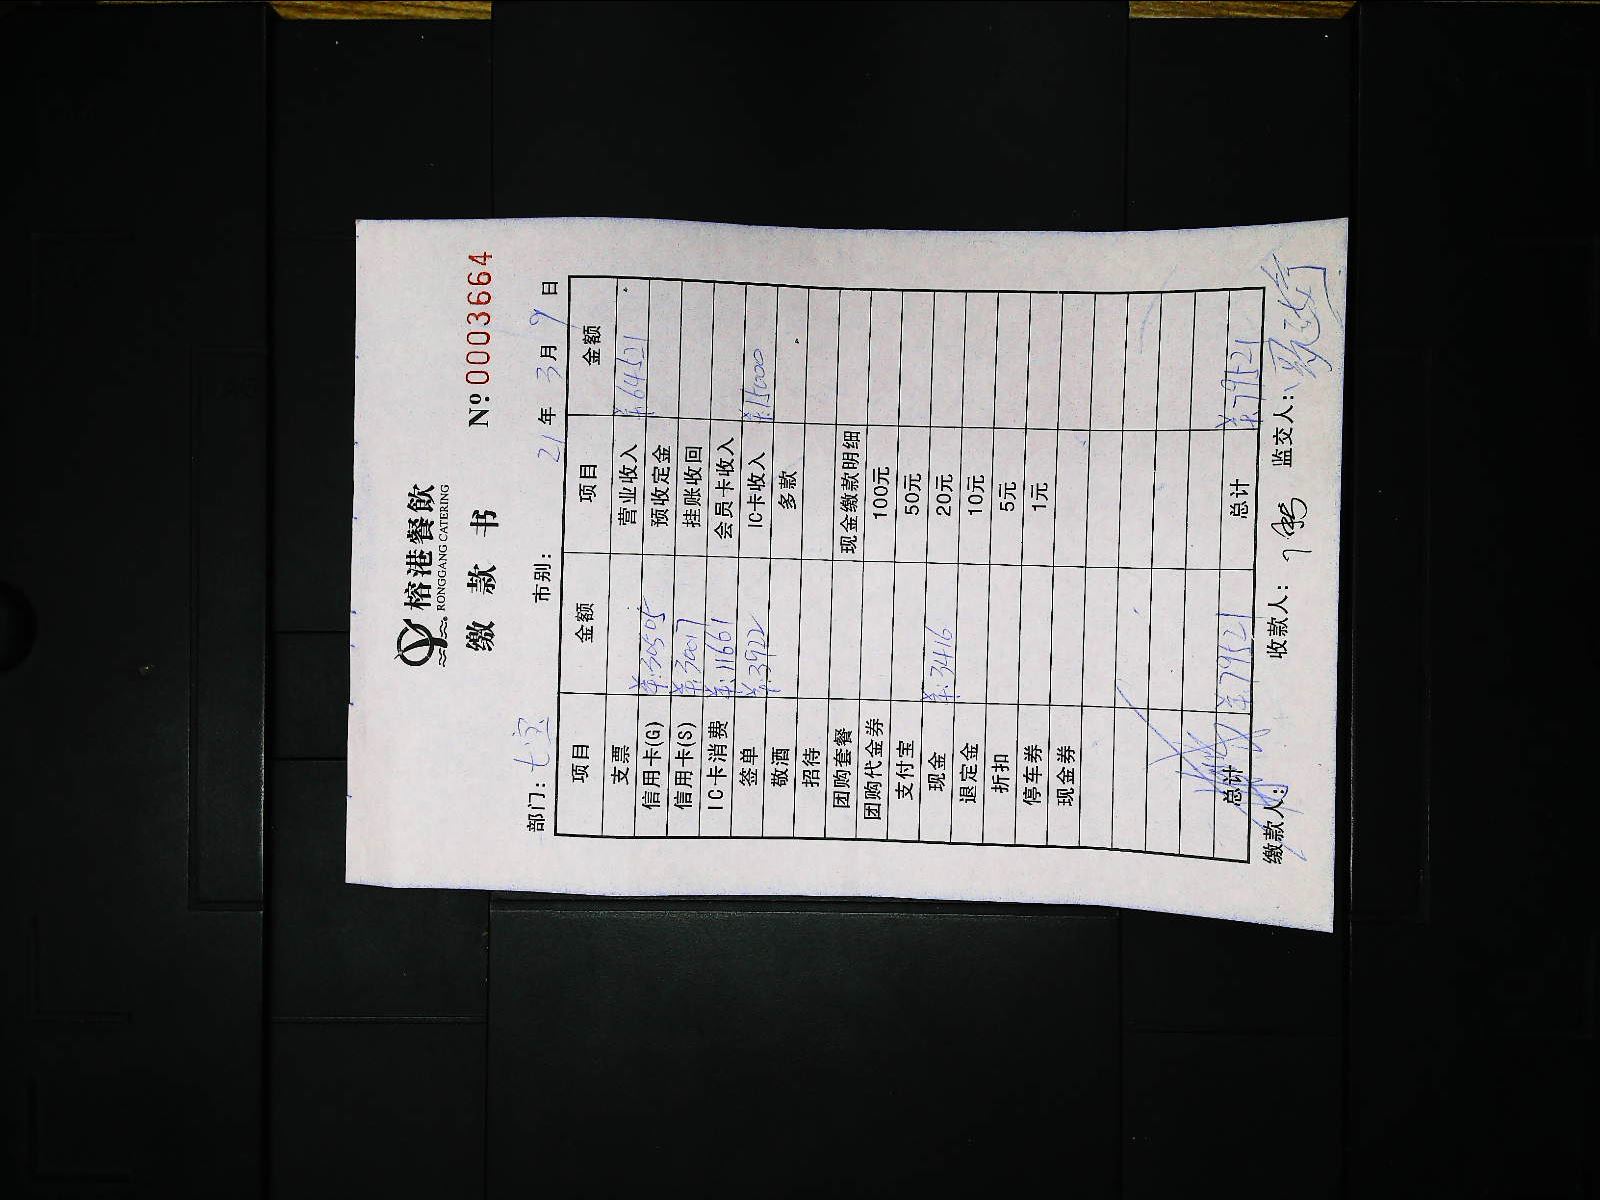 榕港餐飲
RONGGANG CATERING
缴 款 书 Nº 0003664
部门: 七宝 市别: 21年 3月 9日
项目 金额 项目 金额
支票 营业收入 ¥:64521
信用卡(G) ¥:30505 预收定金
信用卡(S) ¥:30017 挂账收回
IC卡消费 ¥:11661 会员卡收入
签单 ¥:3922 IC卡收入 ¥:15000
敬酒 多款
招待
团购套餐 现金缴款明细
团购代金券 100元
支付宝 50元
现金 ¥:3416 20元
退定金 10元
折扣 5元
停车券 1元
现金券
总计 ¥:79521 总计 ¥:79521
缴款人: 收款人: 监交人: